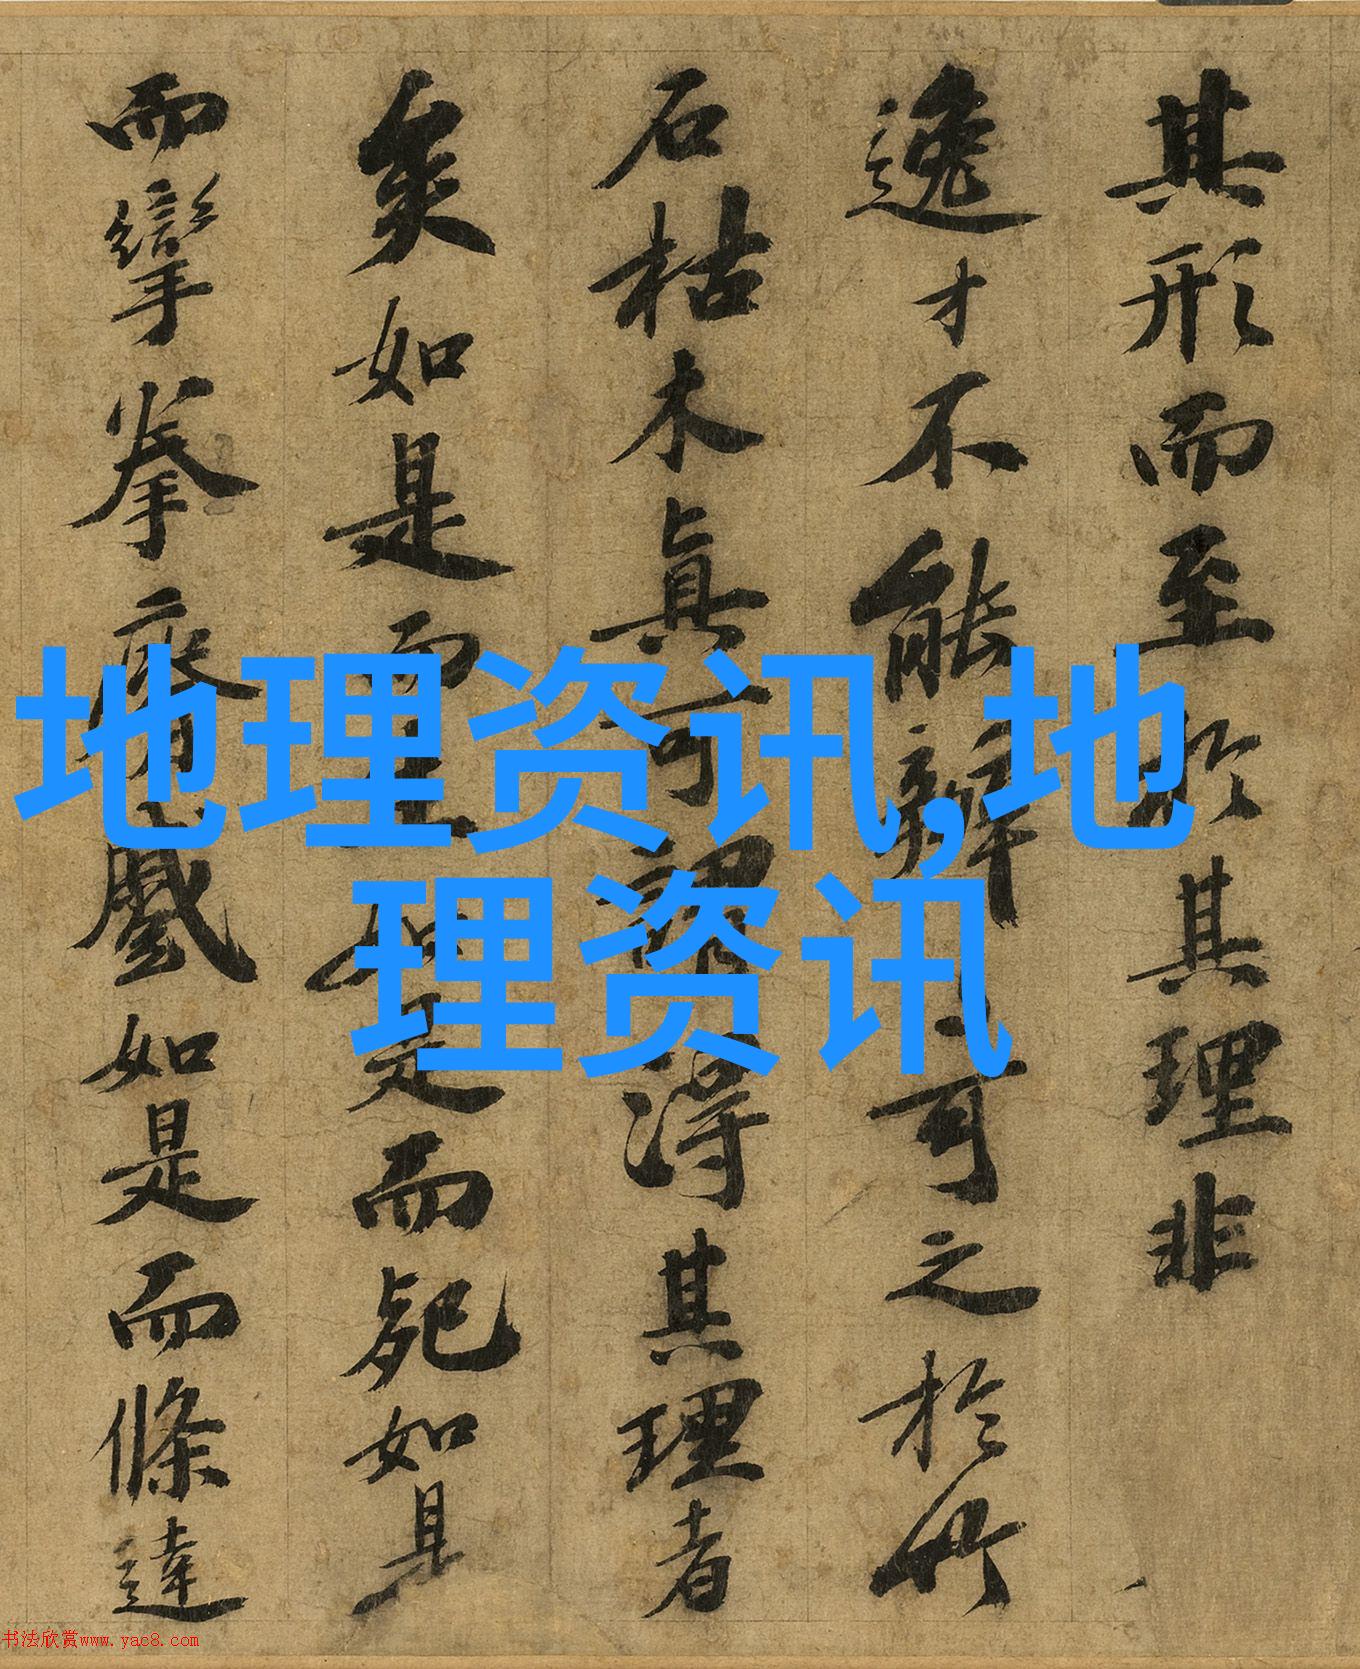 其形而至於其理非
逸才不能辨可之於竹
石枯木眞可謂得其理者
矣如是而生如是而死如是
而攣拳瘠蹙如是而條達
地理资讯,地
理资讯
书法欣赏www.yac8.com